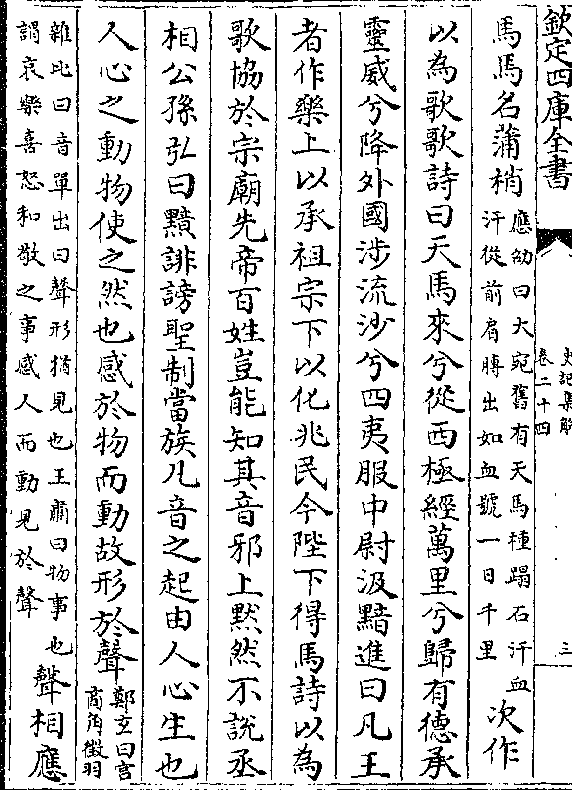 欽定四庫全書
史記集解
卷二十四
三
馬馬名蒲梢
應劭曰大宛舊有天馬種蹋石汗血
汗從前肩膊出如血號一日千里
次作
以為歌歌詩曰天馬來兮從西極經萬里兮歸有德承
靈威兮降外國涉流沙兮四夷服中尉汲黯進曰凡王
者作樂上以承祖宗下以化兆民今陛下得馬詩以為
歌協於宗廟先帝百姓豈能知其音邪上默然不說丞
相公孫弘曰黯誹謗聖制當族凡音之起由人心生也
人心之動物使之然也感於物而動故形於聲
鄭玄曰宫
商角徵羽
雜比曰音單出曰聲形猶見也王肅曰物事也
謂哀樂喜怒和敬之事感人而動見於聲
聲相應